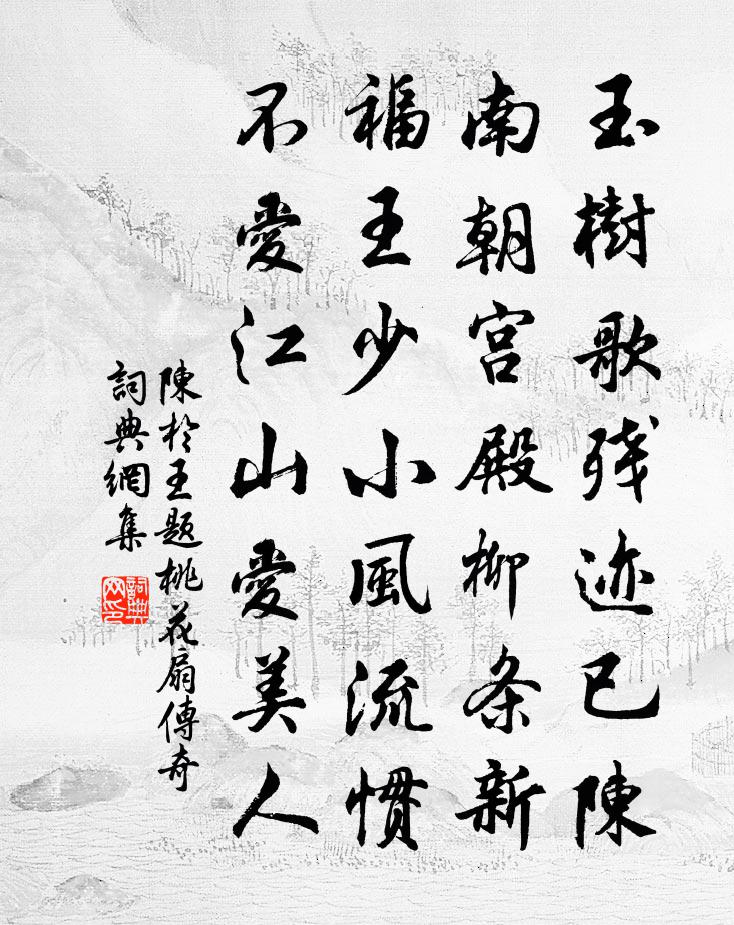 玉樹歌残迹已陳
南朝宫殿柳条新
福王少小風流慣
不愛江山愛美人
陳於王题桃花扇傳奇
詞典網集
詞典网印